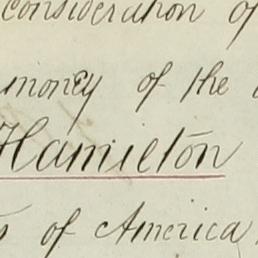 consideration of
money of the
Hamilton
of America